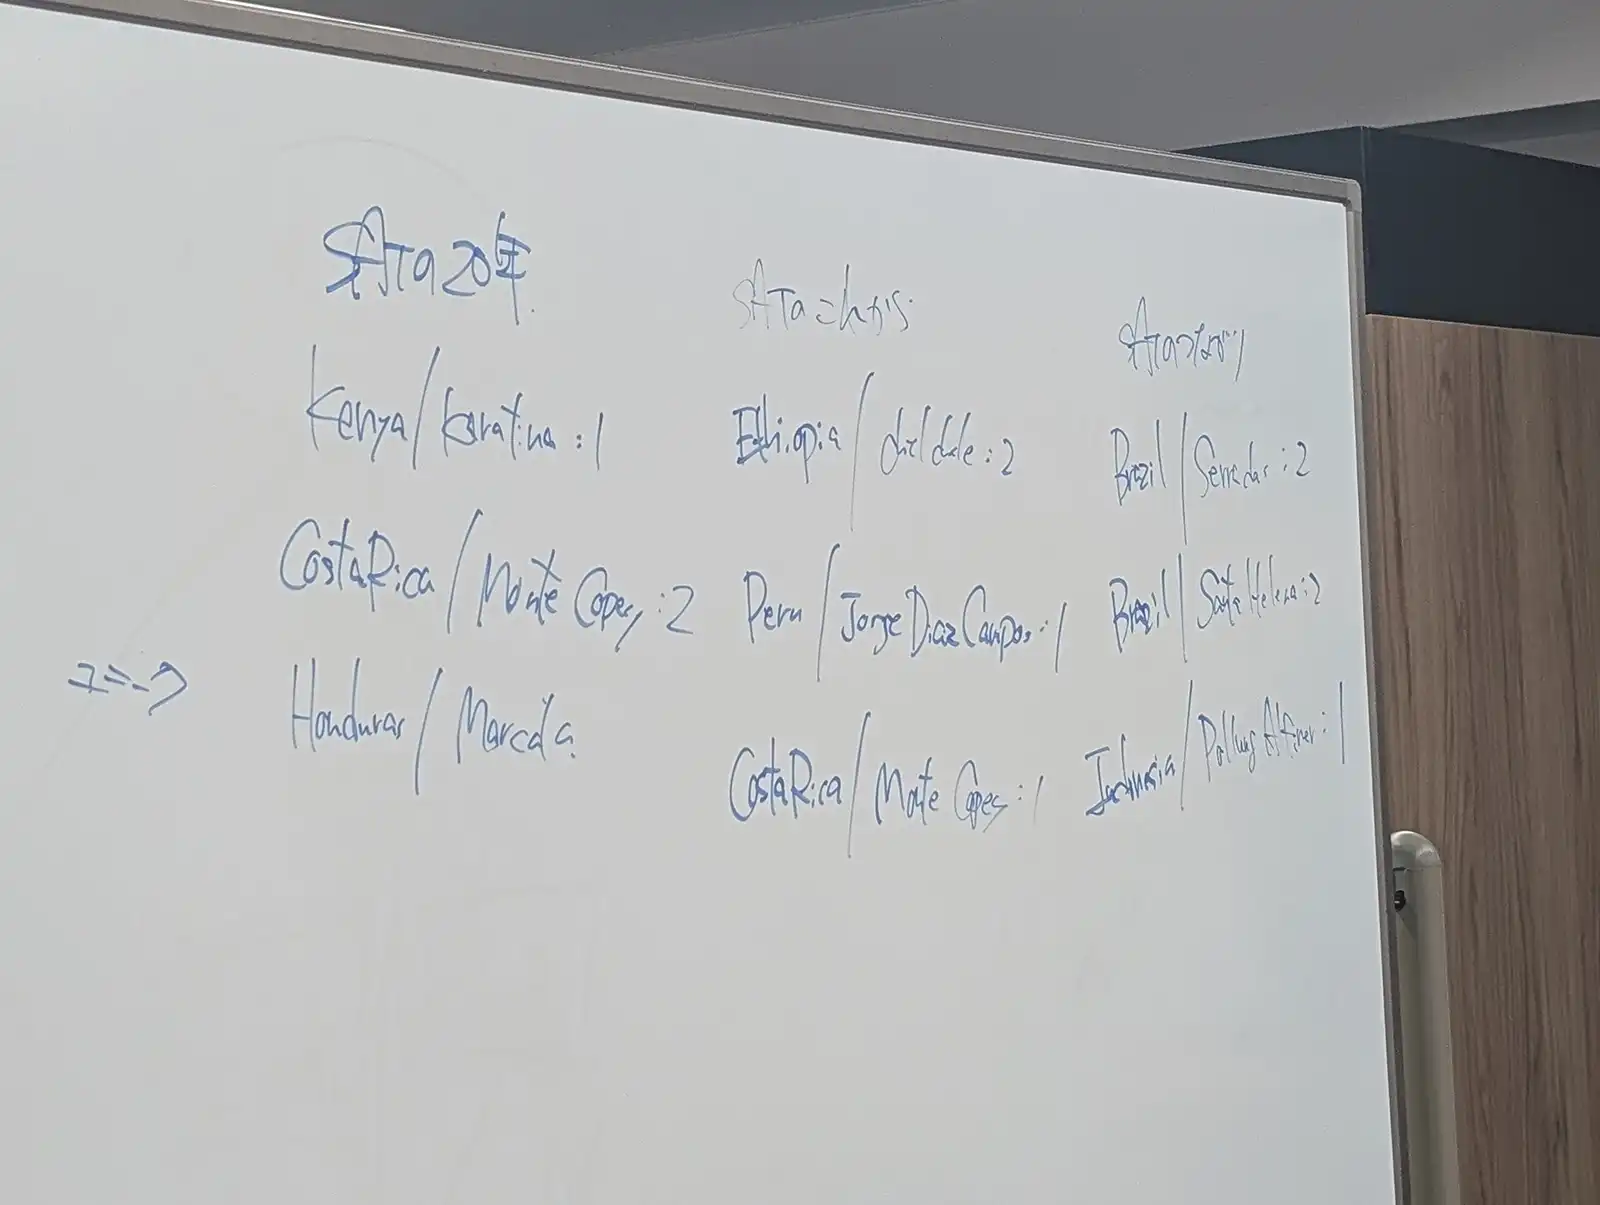 SATA20年
Kenya/Karatina:1
CostaRica/Monte Copey:2
Honduras/Marcala
SATAこれから
Ethiopia/:2
Peru/Jorge Diaz Campos:1
CostaRica/Monte Copey:1
SATAのつながり
Brazil/Serra das:2
Brazil/Santa Helena:2
Indonesia/:1